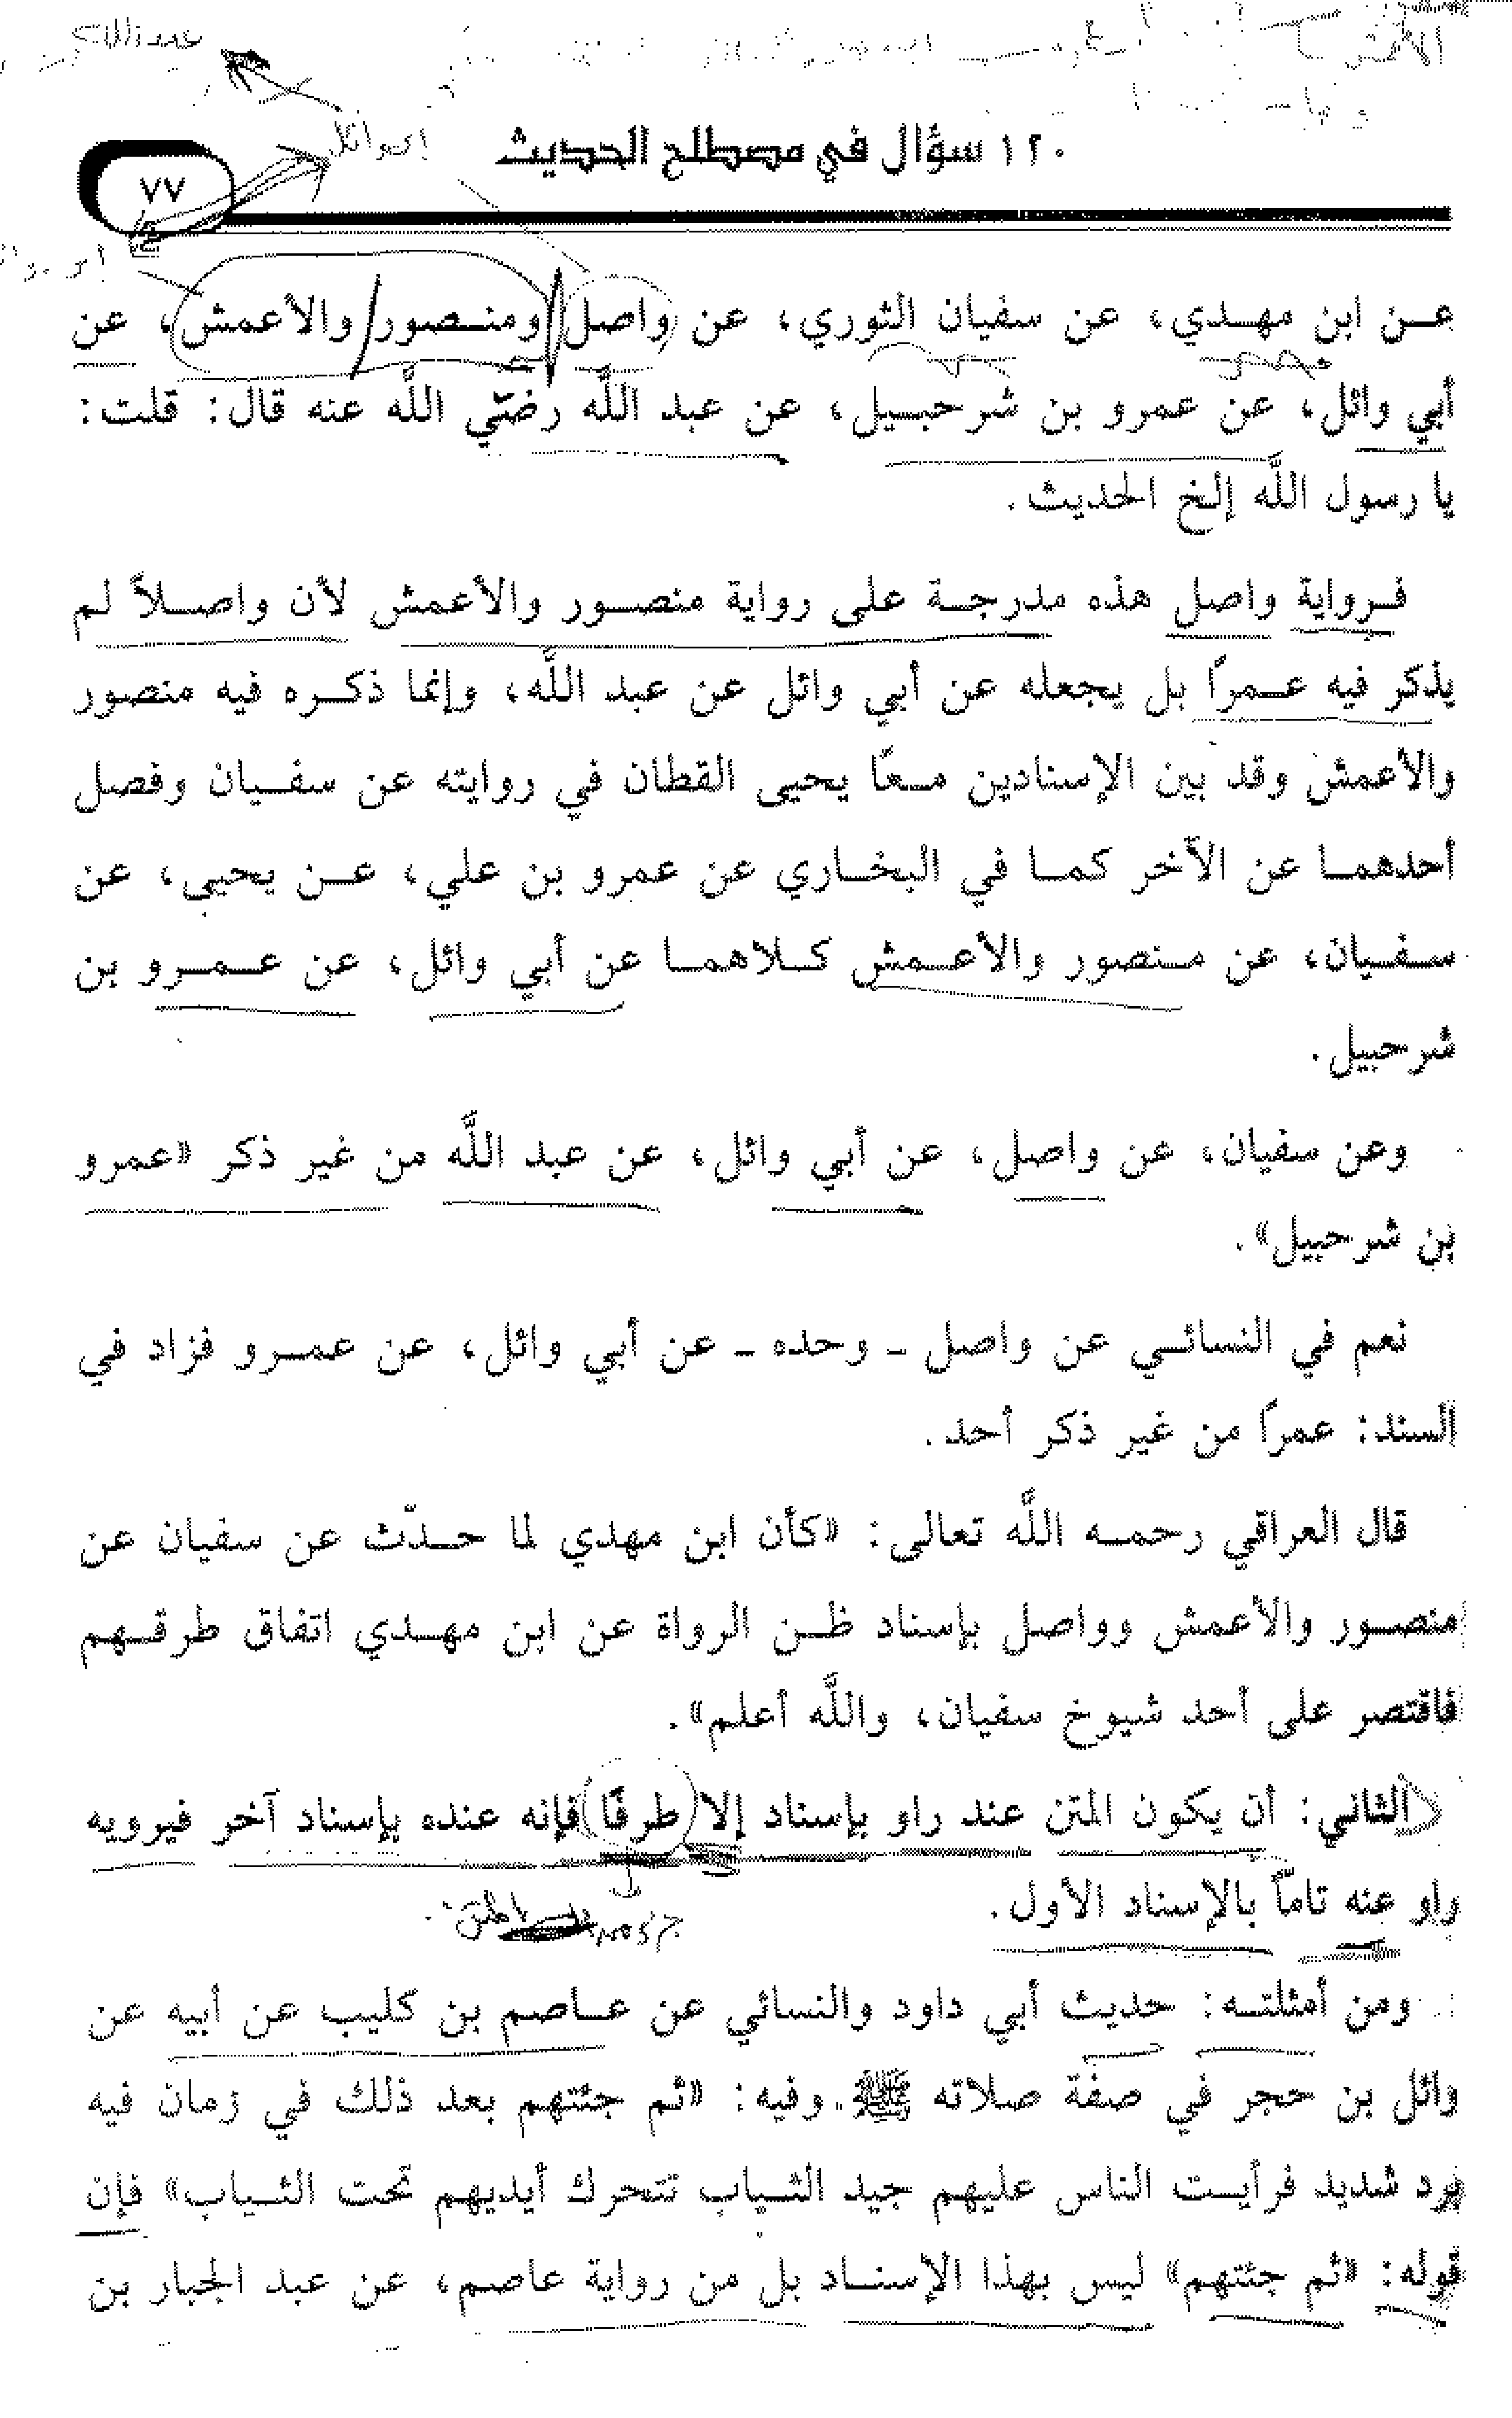 عبد الله
أبي وائل
١٢٠ سؤال في مصطلح الحديث
٧٧
عن ابن مهدي، عن سفيان الثوري، عن واصل ومنصور والأعمش، عن
أبي وائل، عن عمرو بن شرحبيل، عن عبد اللَّه رضي اللَّه عنه قال: قلت:
يا رسول اللَّه إلخ الحديث.
فرواية واصل هذه مدرجة على رواية منصور والأعمش لأن واصلاً لم
يذكر فيه عمراً بل يجعله عن أبي وائل عن عبد اللَّه، وإنما ذكره فيه منصور
والأعمش وقد بين الإسنادين معًا يحيى القطان في روايته عن سفيان وفصل
أحدهما عن الآخر كما في البخاري عن عمرو بن علي، عن يحيى، عن
سفيان، عن منصور والأعمش كلاهما عن أبي وائل، عن عمرو بن
شرحبيل.
وعن سفيان، عن واصل، عن أبي وائل، عن عبد اللَّه من غير ذكر «عمرو
بن شرحبيل».
نعم في النسائي عن واصل - وحده - عن أبي وائل، عن عمرو فزاد في
السند: عمراً من غير ذكر أحد.
قال العراقي رحمه اللَّه تعالى: «كأن ابن مهدي لما حدّث عن سفيان عن
منصور والأعمش وواصل بإسناد ظن الرواة عن ابن مهدي اتفاق طرقهم
فاقتصر على أحد شيوخ سفيان، واللَّه أعلم».
الثاني: أن يكون المتن عند راو بإسناد إلا طرفًا فإنه عنده بإسناد آخر فيرويه
راو عنه تاماً بالإسناد الأول.
جزء من المتن
ومن أمثلته: حديث أبي داود والنسائي عن عاصم بن كليب عن أبيه عن
وائل بن حجر في صفة صلاته ﷺ. وفيه: «ثم جئتهم بعد ذلك في زمان فيه
برد شديد فرأيت الناس عليهم جيد الثياب تتحرك أيديهم تحت الثياب» فإن
قوله: «ثم جئتهم» ليس بهذا الإسناد بل من رواية عاصم، عن عبد الجبار بن